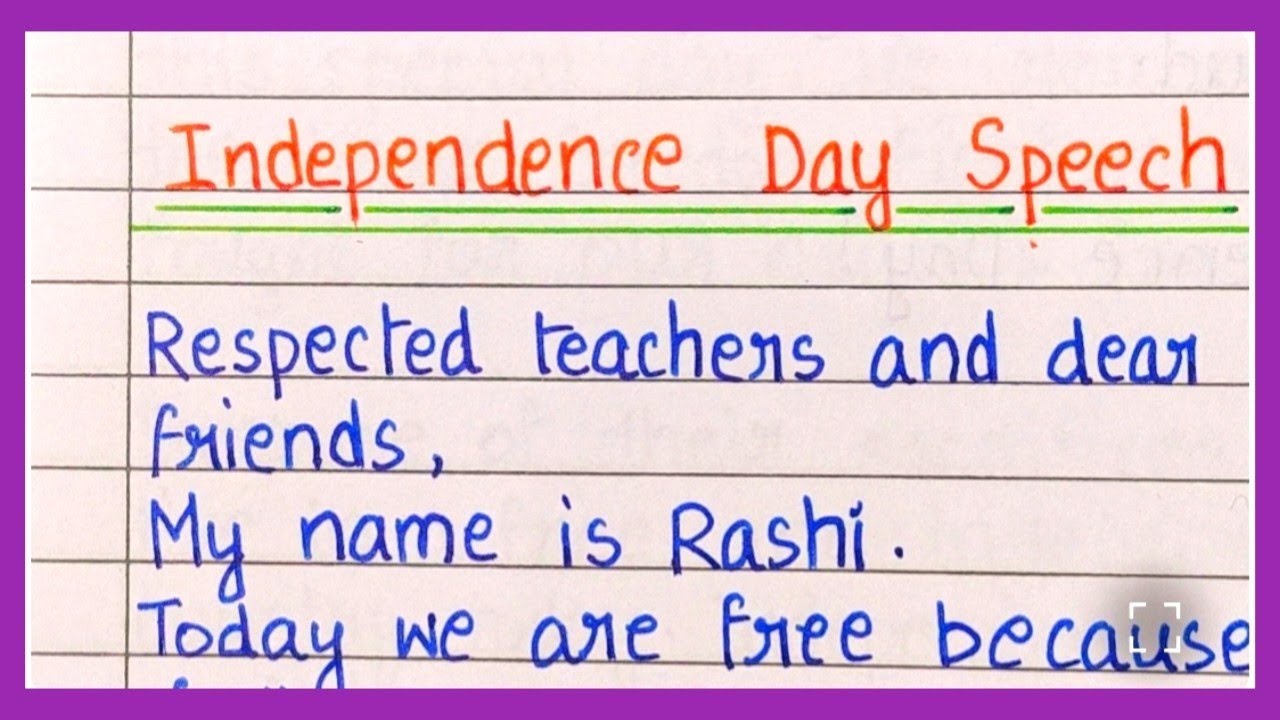 Independence Day Speech
Respected teachers and dear
friends,
My name is Rashi.
Today we are free because